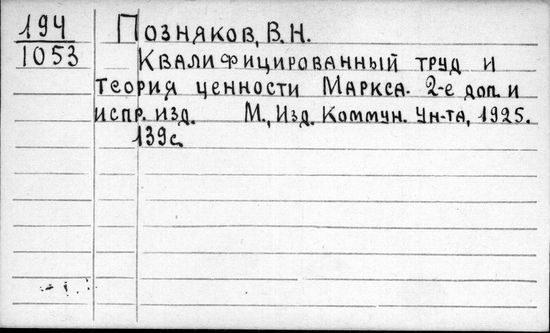 194 Позняков, В.Н.
1053 Квалифицированный труд и
теория ценности Маркса. 2-е доп. и
испр. изд. М., Изд. Коммун. Ун-та, 1925.
139с.